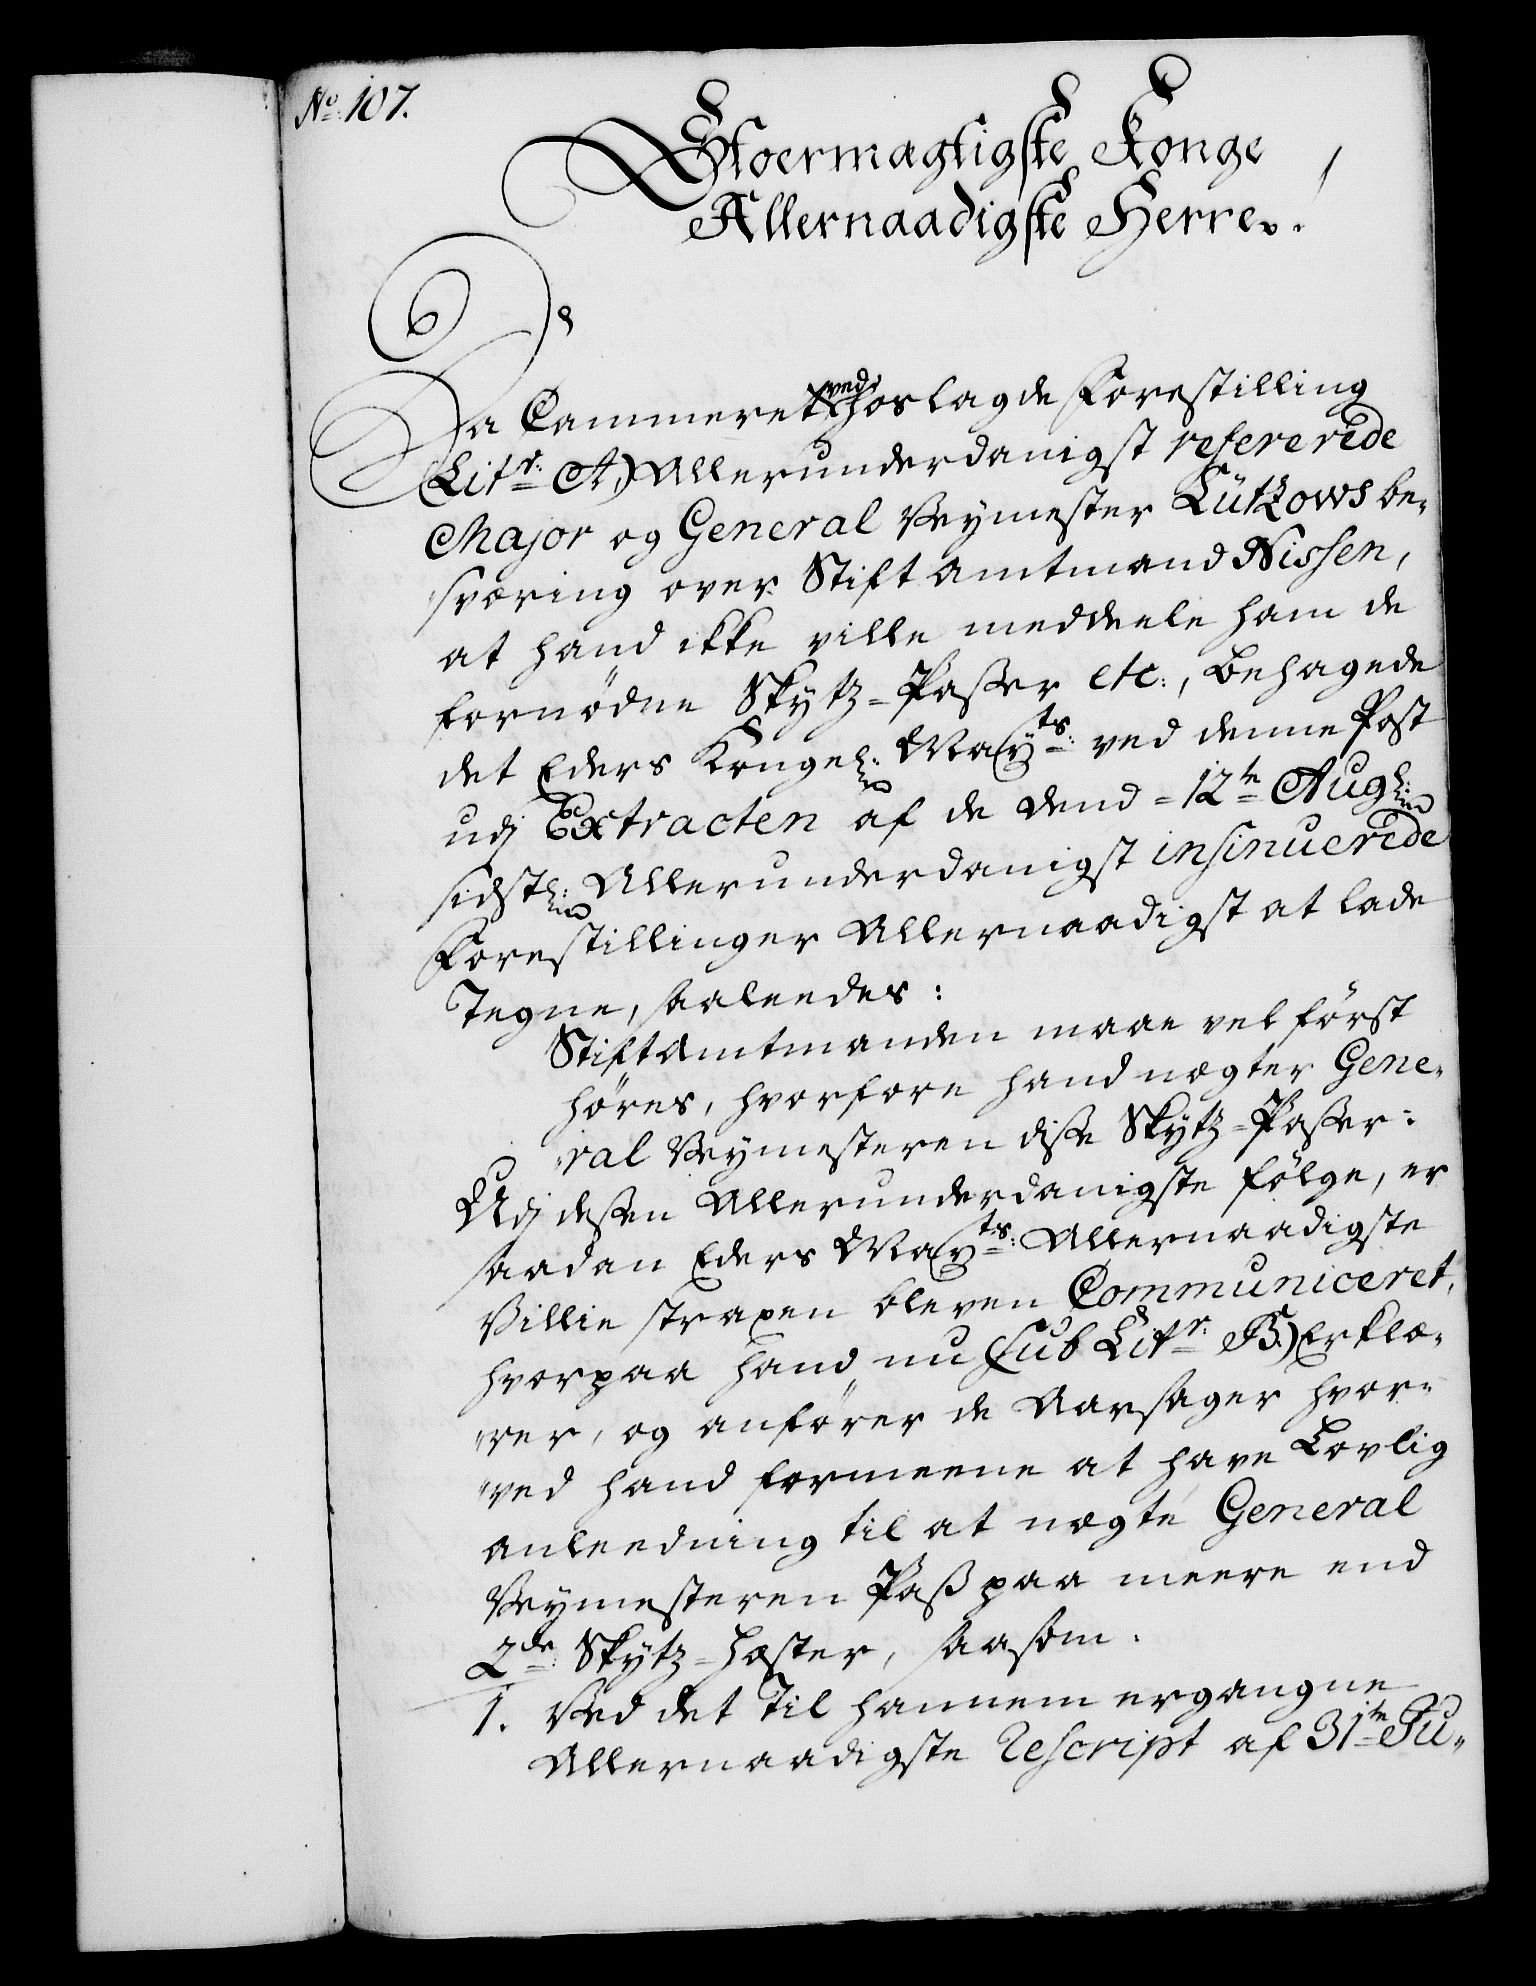 No: 107.
Stoermægtigste Konge
Allernaadigste Herre.!
Da Cammeret ved hoslagde Forestilling
(Litr: A.) Allerunderdanigst refererede
Major og General Veymester Lützows be„
„sværing over Stift Amtmand Nissen,
at hand ikke ville meddeele ham de
fornødne Skytz-Passer etc:, behagede
det Eders Kongel: Mayts: ved denne Post
udj Extracten af de dend 12te Aug:
sidstl: Allerunderdanigst insinuerede
Forestillinger Allernaadigst at lade
Tegne, saaleedes:
Stiftamtmanden maae vel først
høres, hvorfore hand nægter Gene„
„ral Veymesteren disse Skytz-Passer:
Udj dessen Allerunderdanigste følge, er
saadan Eders Mayts: Allernaadigste
Villie straxen bleven Communiceret,
hvorpaa hand nu (sub Litr: B.) Erklæ„
„rer, og anfører de Aarsager hvor„
„ved hand formeene at have Lovlig
anleedning til at nægte General
Veymesteren Pass paa meere end
2de: Skytz-Hæster, saasom:
1. Ved det Til hannem ergangne
Allernaadigste Rescript af 31te Ju„